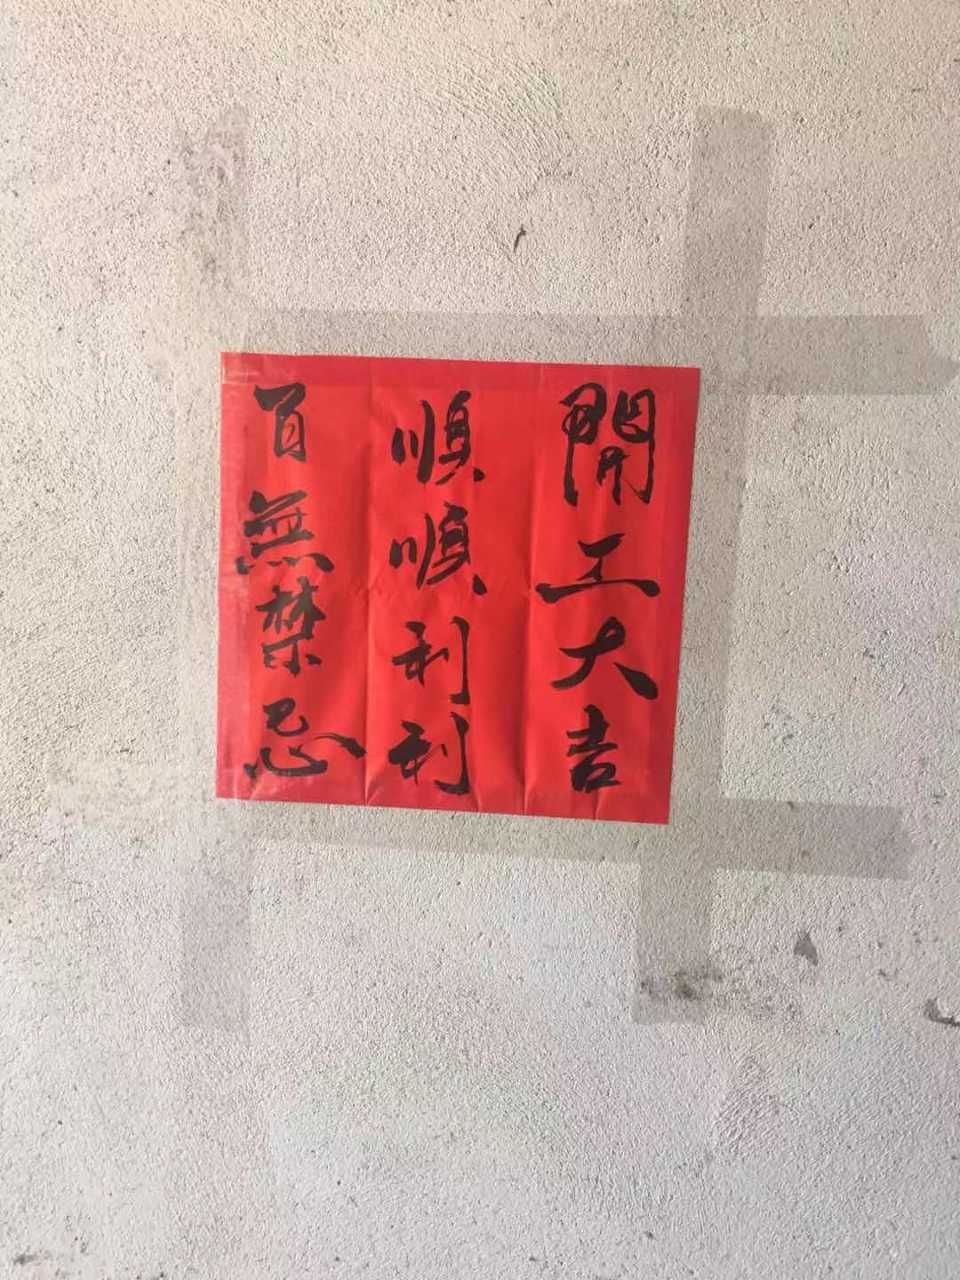 開工大吉
順順利利
百無禁忌